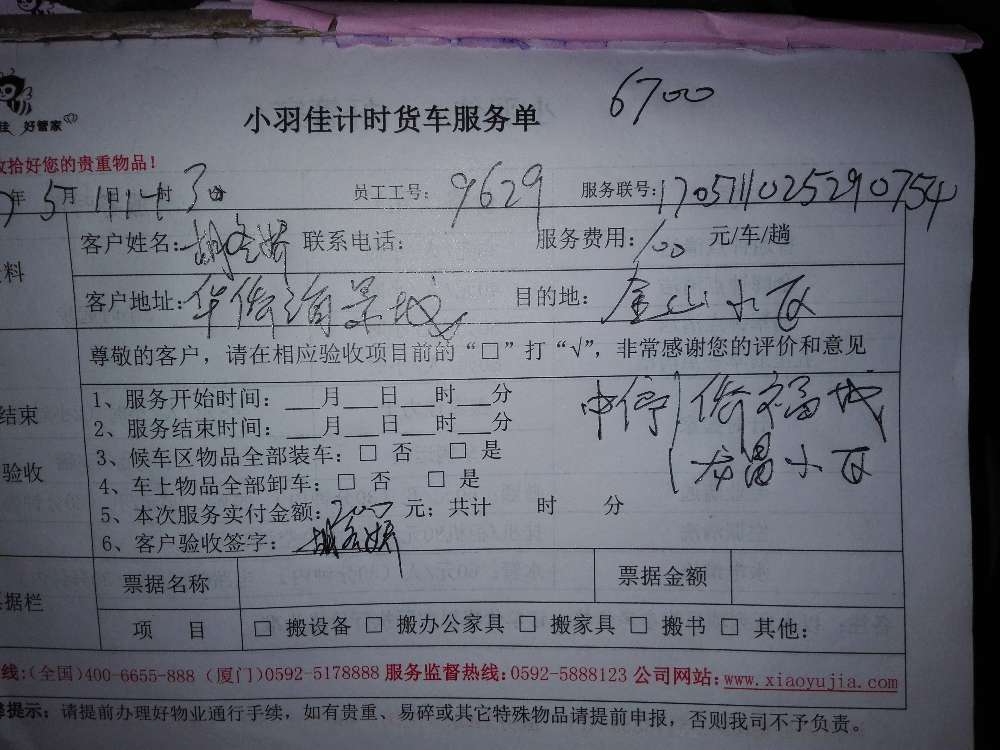 6700
佳 好管家
小羽佳计时货车服务单
收拾好您的贵重物品!
年 5月 11日 14时 30
员工工号: 9629 服务联号: 170511102529 0754
料
客户姓名: 联系电话: 服务费用: 100 元/车/趟
客户地址: 华侨海景城 目的地: 金山小区
尊敬的客户，请在相应验收项目前的“□”打“√”，非常感谢您的评价和意见
结束
验收
1、服务开始时间: ___月___日___时___分
2、服务结束时间: ___月___日___时___分
3、候车区物品全部装车: □ 否 □ 是
4、车上物品全部卸车: □ 否 □ 是
5、本次服务实付金额: 200 元; 共计 时 分
6、客户验收签字:
中停 侨福城
龙昌小区
据栏
票据名称 票据金额
项 目 □ 搬设备 □ 搬办公家具 □ 搬家具 □ 搬书 □ 其他:
线:(全国)400-6655-888 (厦门)0592-5178888 服务监督热线:0592-5888123 公司网站:www.xiaoyujia.com
提示: 请提前办理好物业通行手续，如有贵重、易碎或其它特殊物品请提前申报，否则我司不予负责。